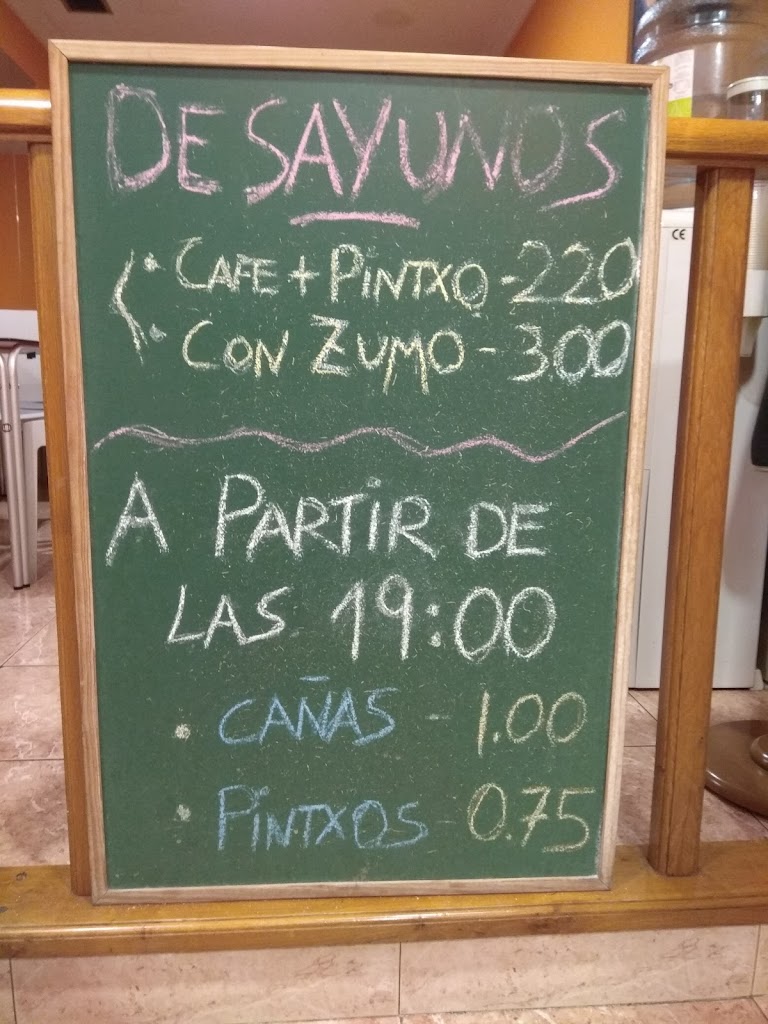 DESAYUNOS
• CAFE + PINTXO - 2.20
• CON ZUMO - 3.00
A PARTIR DE
LAS 19:00
• CAÑAS - 1.00
• PINTXOS - 0.75
CE